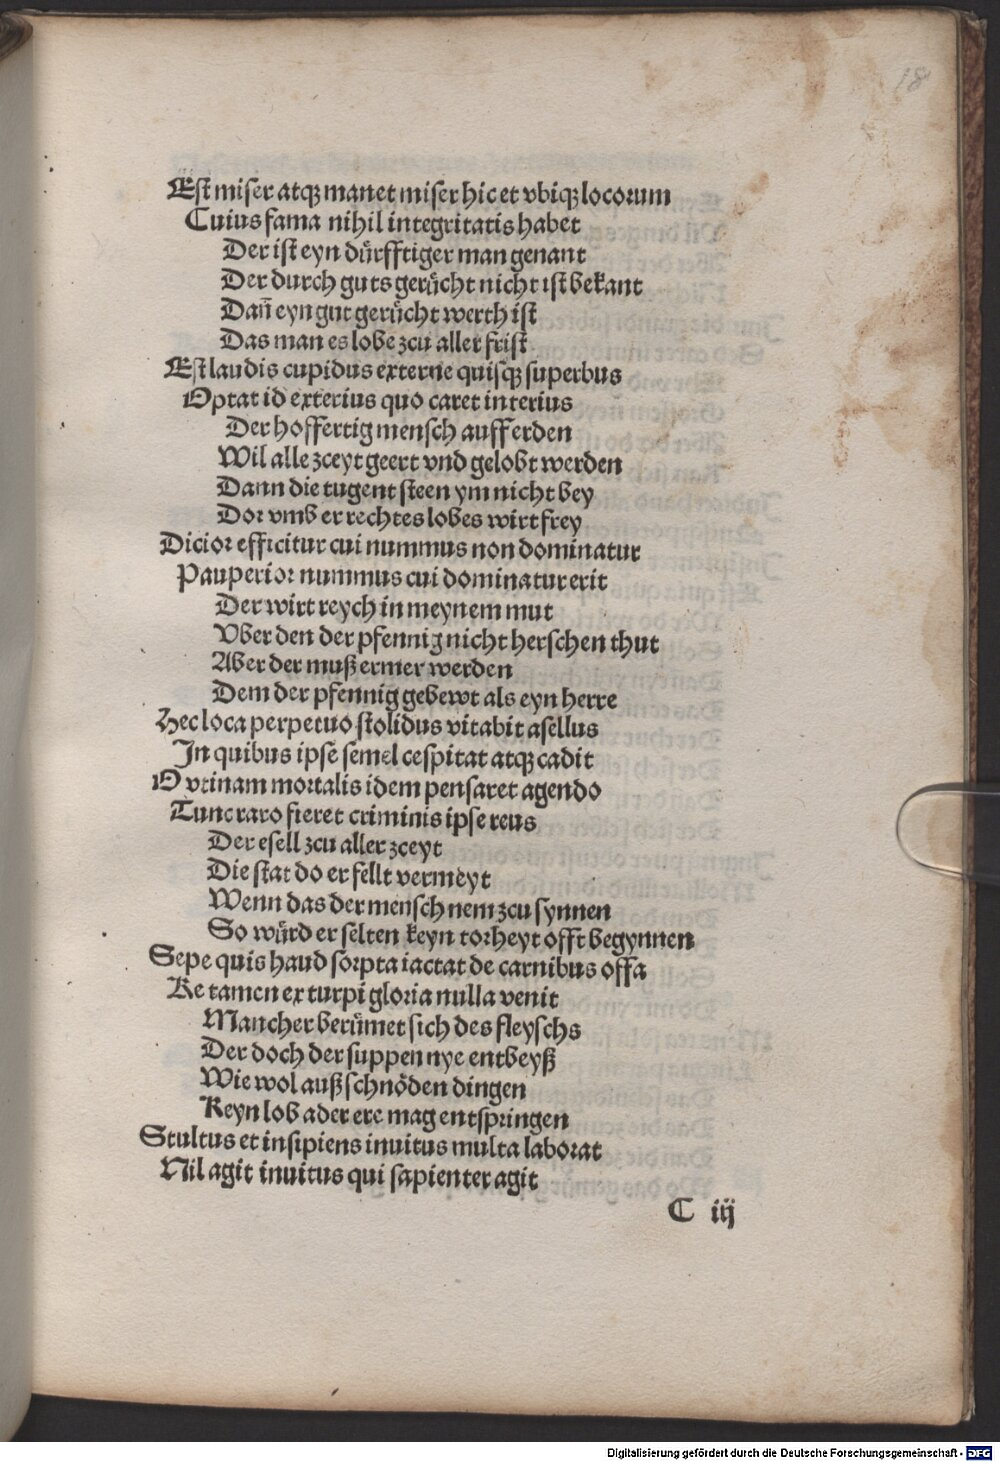 18
Est miser atqꝫ manet miser hic et vbiqꝫ locorum
Cuius fama nihil integritatis habet
Der ist eyn dürfftiger man genant
Der durch guts gerücht nicht ist bekant
Dañ eyn gut gerücht werth ist
Das man es lobe zcu aller frist
Est laudis cupidus externe quisqꝫ superbus
Optat id exterius quo caret interius
Der hoffertig mensch auff erden
Wil alle zceyt geert vnd gelobt werden
Dann die tugent steen ym nicht bey
Dor vmb er rechtes lobes wirt frey
Dicior efficitur cui nummus non dominatur
Pauperior nummus cui dominatur erit
Der wirt reych in meynem mut
Vber den der pfennig nicht herschen thut
Aber der muß ermer werden
Dem der pfennig gebewt als eyn herre
Hec loca perpetuo stolidus vitabit asellus
In quibus ipse semel cespitat atqꝫ cadit
O vtinam mortalis idem pensaret agendo
Tunc raro fieret criminis ipse reus
Der esell zcu aller zceyt
Die stat do er fellt vermeyt
Wenn das der mensch nem zcu synnen
So würd er selten keyn torheyt offt begynnen
Sepe quis haud sorpta iactat de carnibus offa
Re tamen ex turpi gloria nulla venit
Mancher berümet sich des fleyschs
Der doch der suppen nye entbeyß
Wie wol auß schnöden dingen
Keyn lob ader ere mag entspringen
Stultus et insipiens inuitus multa laborat
Nil agit inuitus qui sapienter agit
C iij
Digitalisierung gefördert durch die Deutsche Forschungsgemeinschaft - DFG